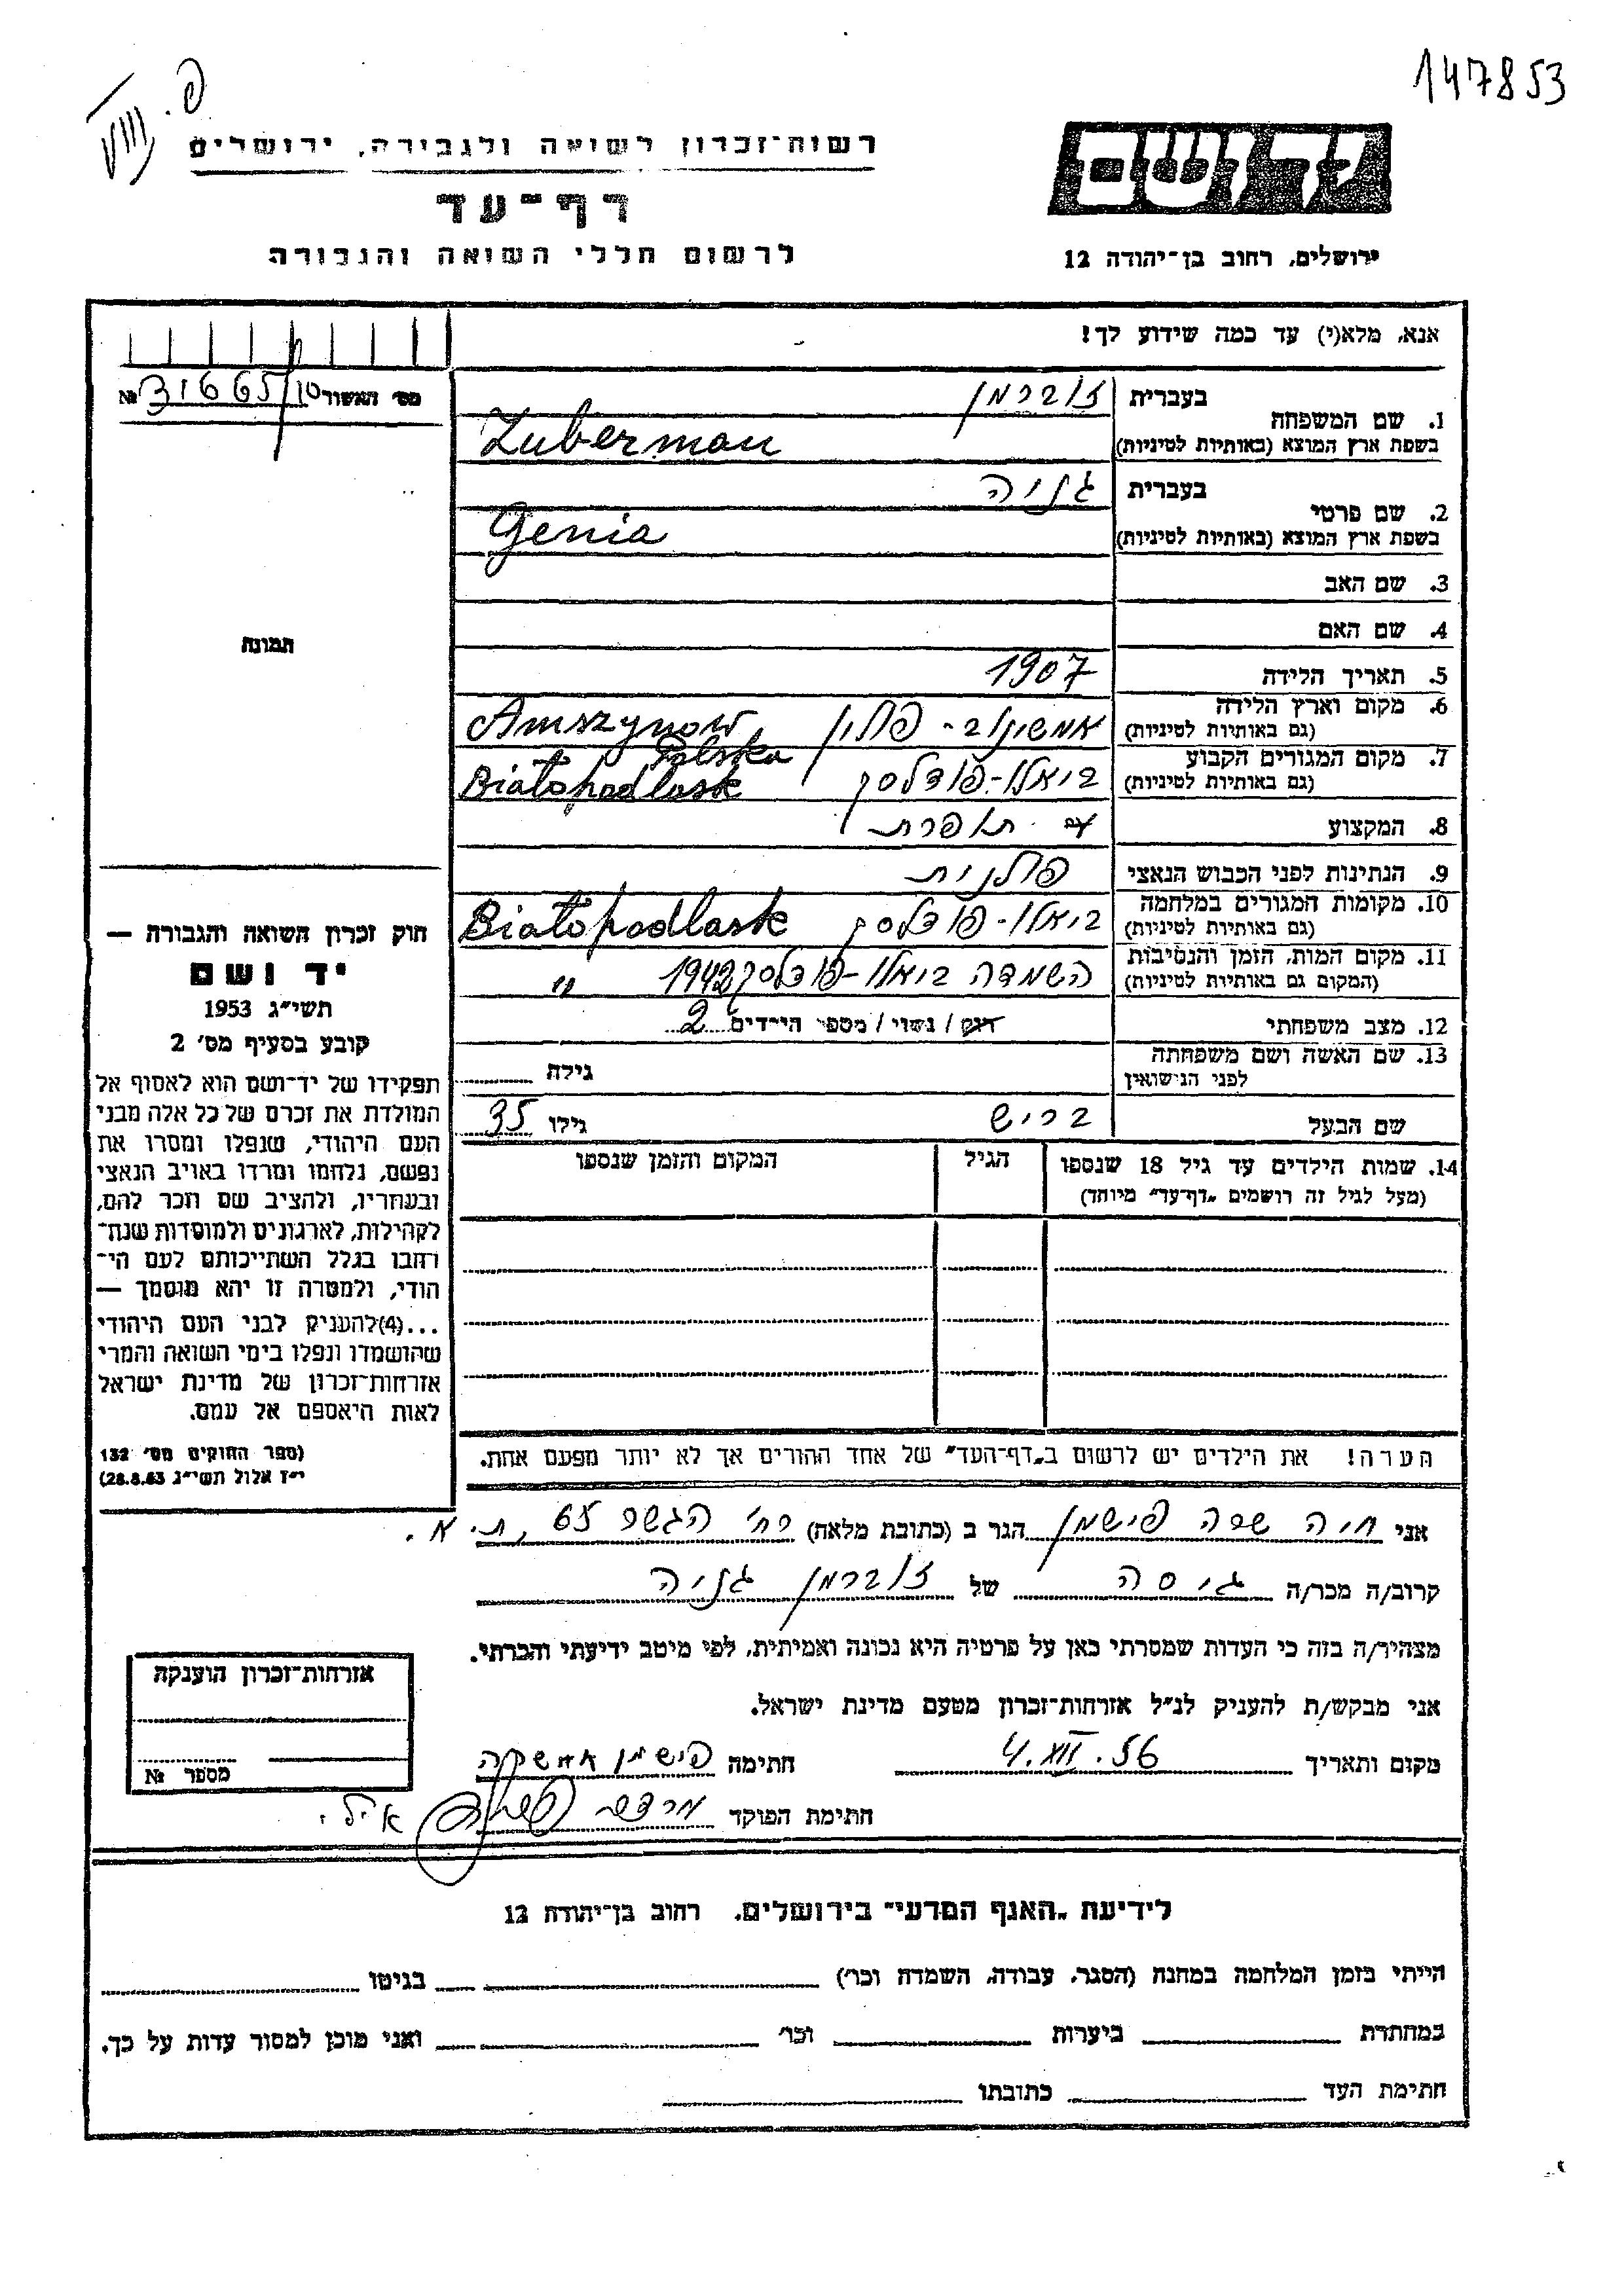 147853
רשות־זכרון לשואה ולגבורה, ירושלים
דף־עד
לרשום חללי השואה והגבורה
ירושלים, רחוב בן־יהודה 12
אנא, מלא(י) עד כמה שידוע לך!
מס׳ האשור 31665/10 №
תמונה
בעברית זוברמן
1. שם המשפחה
בשפת ארץ המוצא (באותיות לטיניות) Zuberman
בעברית גניה
2. שם פרטי
בשפת ארץ המוצא (באותיות לטיניות) Genia
3. שם האב
4. שם האם
5. תאריך הלידה 1907
6. מקום וארץ הלידה אמשינוב - פולין Amszynow
(גם באותיות לטיניות) Polska
7. מקום המגורים הקבוע ביאלו-פודלסק Białopodlask
(גם באותיות לטיניות)
8. המקצוע תופרת
9. הנתינות לפני הכבוש הנאצי פולנית
10. מקומות המגורים במלחמה ביאלו-פודלסק Białopodlask
(גם באותיות לטיניות)
11. מקום המות, הזמן והנסיבות השמדה ביאלו-פודלסק 1942 "
(המקום גם באותיות לטיניות)
12. מצב משפחתי רווק / נשוי / מספר הילדים 2
13. שם האשה ושם משפחתה
לפני הנישואין גילה
שם הבעל בריש גילו 35
14. שמות הילדים עד גיל 18 שנספו הגיל המקום והזמן שנספו
(מעל לגיל זה רושמים „דף־עד״ מיוחד)
הערה! את הילדים יש לרשום ב„דף־העד״ של אחד ההורים אך לא יותר מפעם אחת.
חוק זכרון השואה והגבורה —
יד ושם
תשי״ג 1953
קובע בסעיף מס׳ 2
תפקידו של יד־ושם הוא לאסוף אל
המולדת את זכרם של כל אלה מבני
העם היהודי, שנפלו ומסרו את
נפשם, נלחמו ומרדו באויב הנאצי
ובעוזריו, ולהציב שם וזכר להם,
לקהילות, לארגונים ולמוסדות שנח־
רבו בגלל השתייכותם לעם הי־
הודי, ולמטרה זו יהא מוסמך —
...(4)להעניק לבני העם היהודי
שהושמדו ונפלו בימי השואה והמרי
אזרחות־זכרון של מדינת ישראל
לאות היאספם אל עמם.
(ספר החוקים מס׳ 132
י״ז אלול תשי״ג 28.8.53)
אני חיה שרה פישמן הגר ב (כתובת מלאה) רח׳ הגשר 65, ת.א.
קרוב/ה מכר/ה גיסה של זוברמן גניה
מצהיר/ה בזה כי העדות שמסרתי כאן על פרטיה היא נכונה ואמיתית, לפי מיטב ידיעתי והכרתי.
אני מבקש/ת להעניק לנ״ל אזרחות־זכרון מטעם מדינת ישראל.
מקום ותאריך 4.XII.56 חתימה פישמן
חתימת הפוקד
אזרחות־זכרון הוענקה
מספר №
לידיעת „האגף המדעי״ בירושלים, רחוב בן־יהודה 12
הייתי בזמן המלחמה במחנה (הסגר, עבודה, השמדה וכו׳) בגיטו
במחתרת ביערות וכו׳ ואני מוכן למסור עדות על כך.
חתימת העד כתובתו